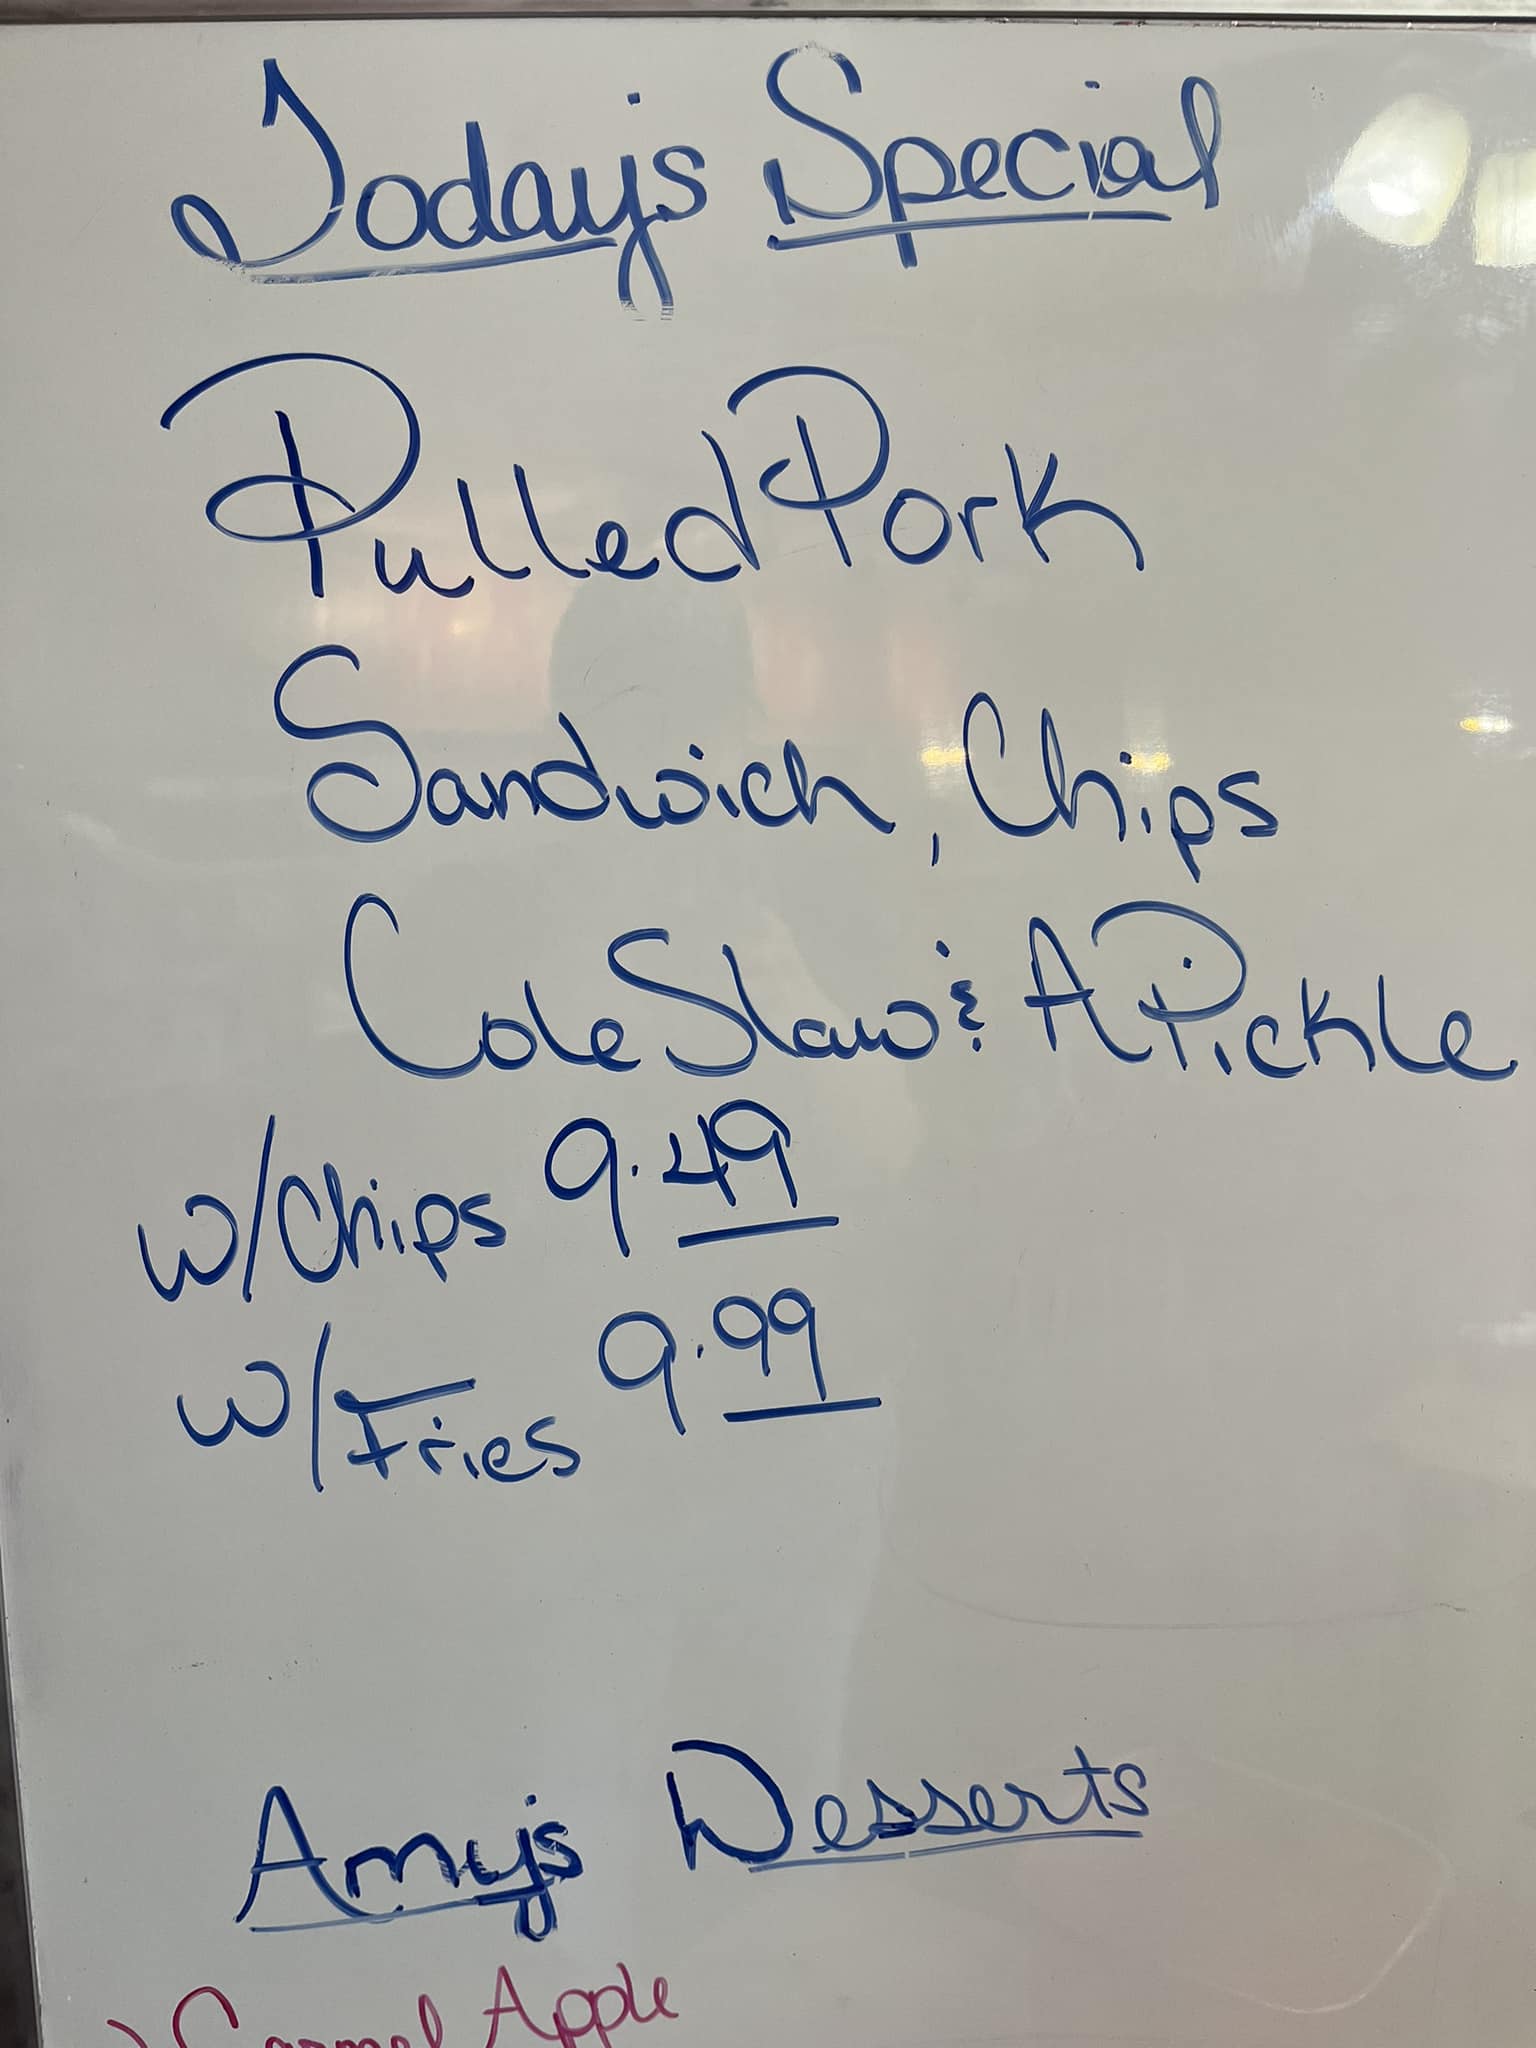 Today's Special
Pulled Pork
Sandwich, Chips
Cole Slaw & A Pickle
w/Chips 9.49
w/Fries 9.99
Amy's Desserts
Carmel Apple